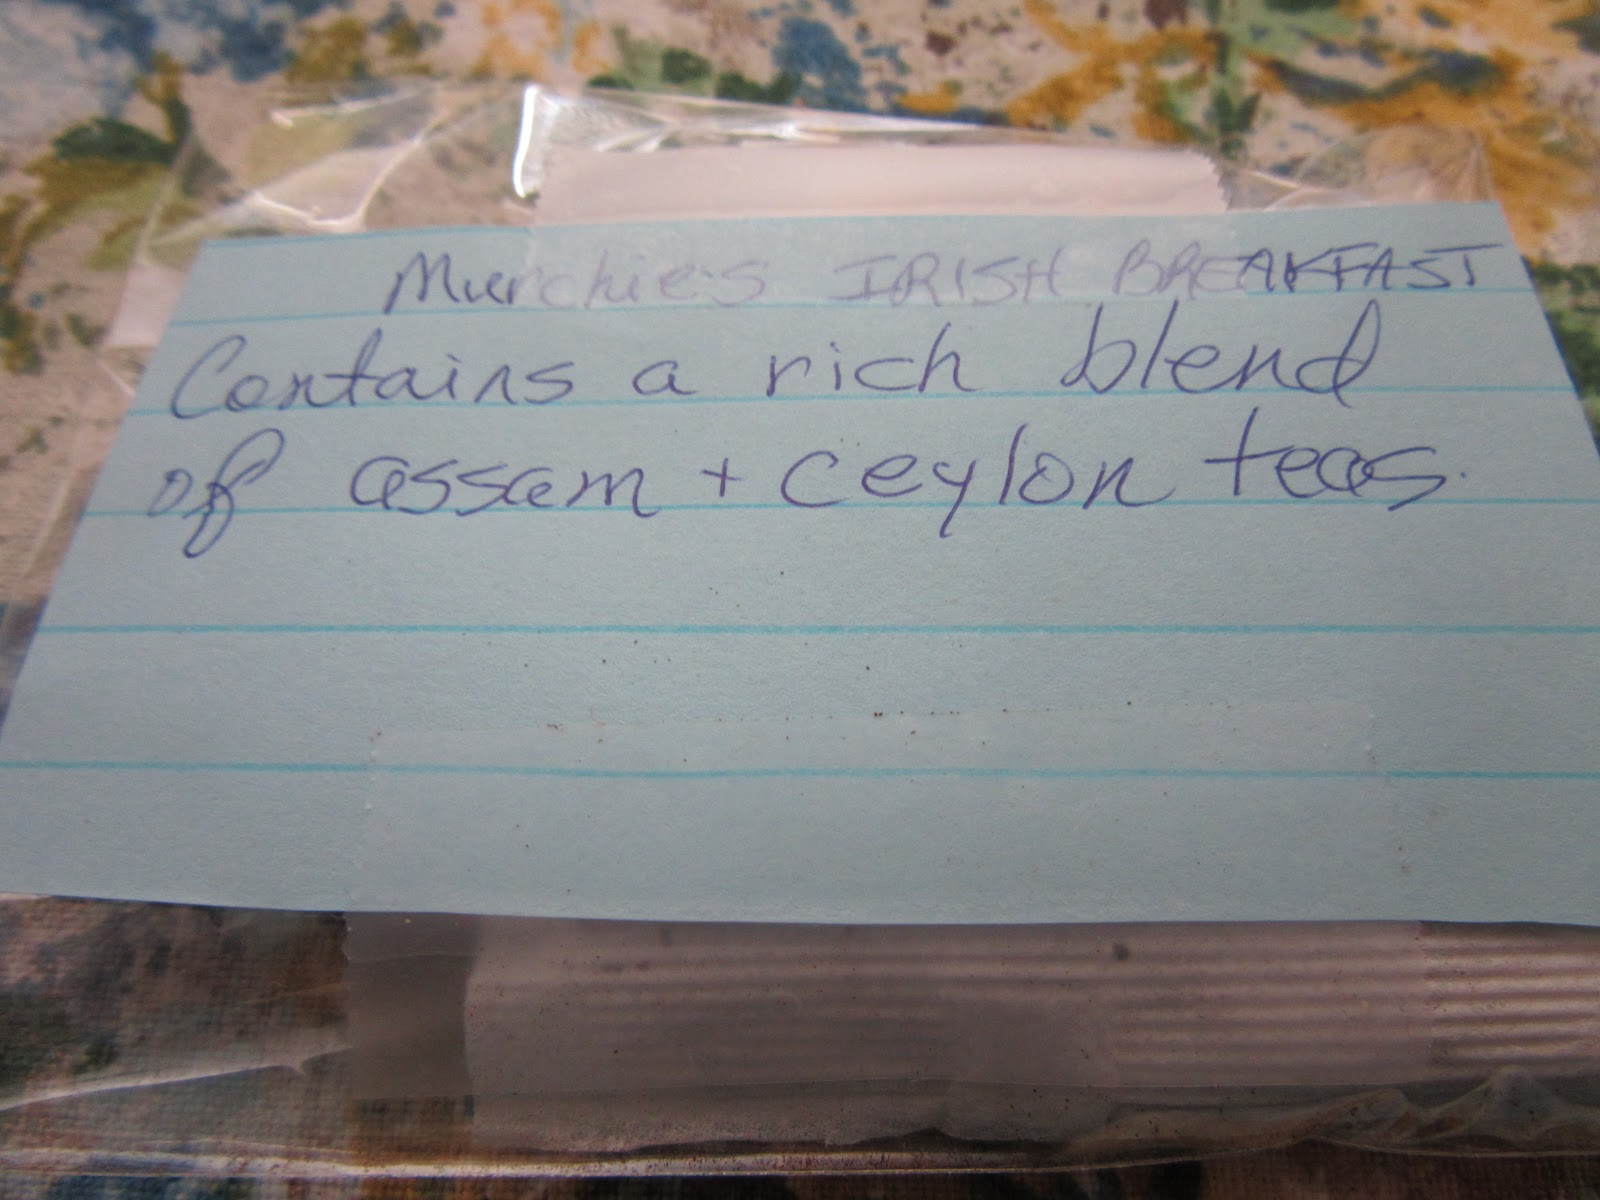 Murchie's IRISH BREAKFAST
Contains a rich blend
of assam + ceylon teas.